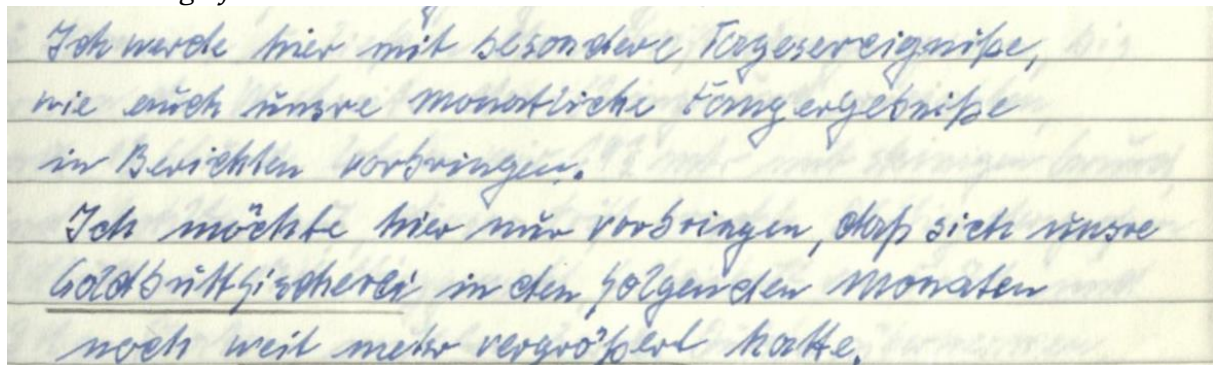 Ich werde hier mit besondere Tagesereigniße,
wie auch unsre monatliche Fangergebniße
in Berichten vorbringen.
Ich möchte hier nur vorbringen, daß sich unsre
Goldbuttfischerei in den folgenden Monaten
noch weit mehr vergrößert hatte.